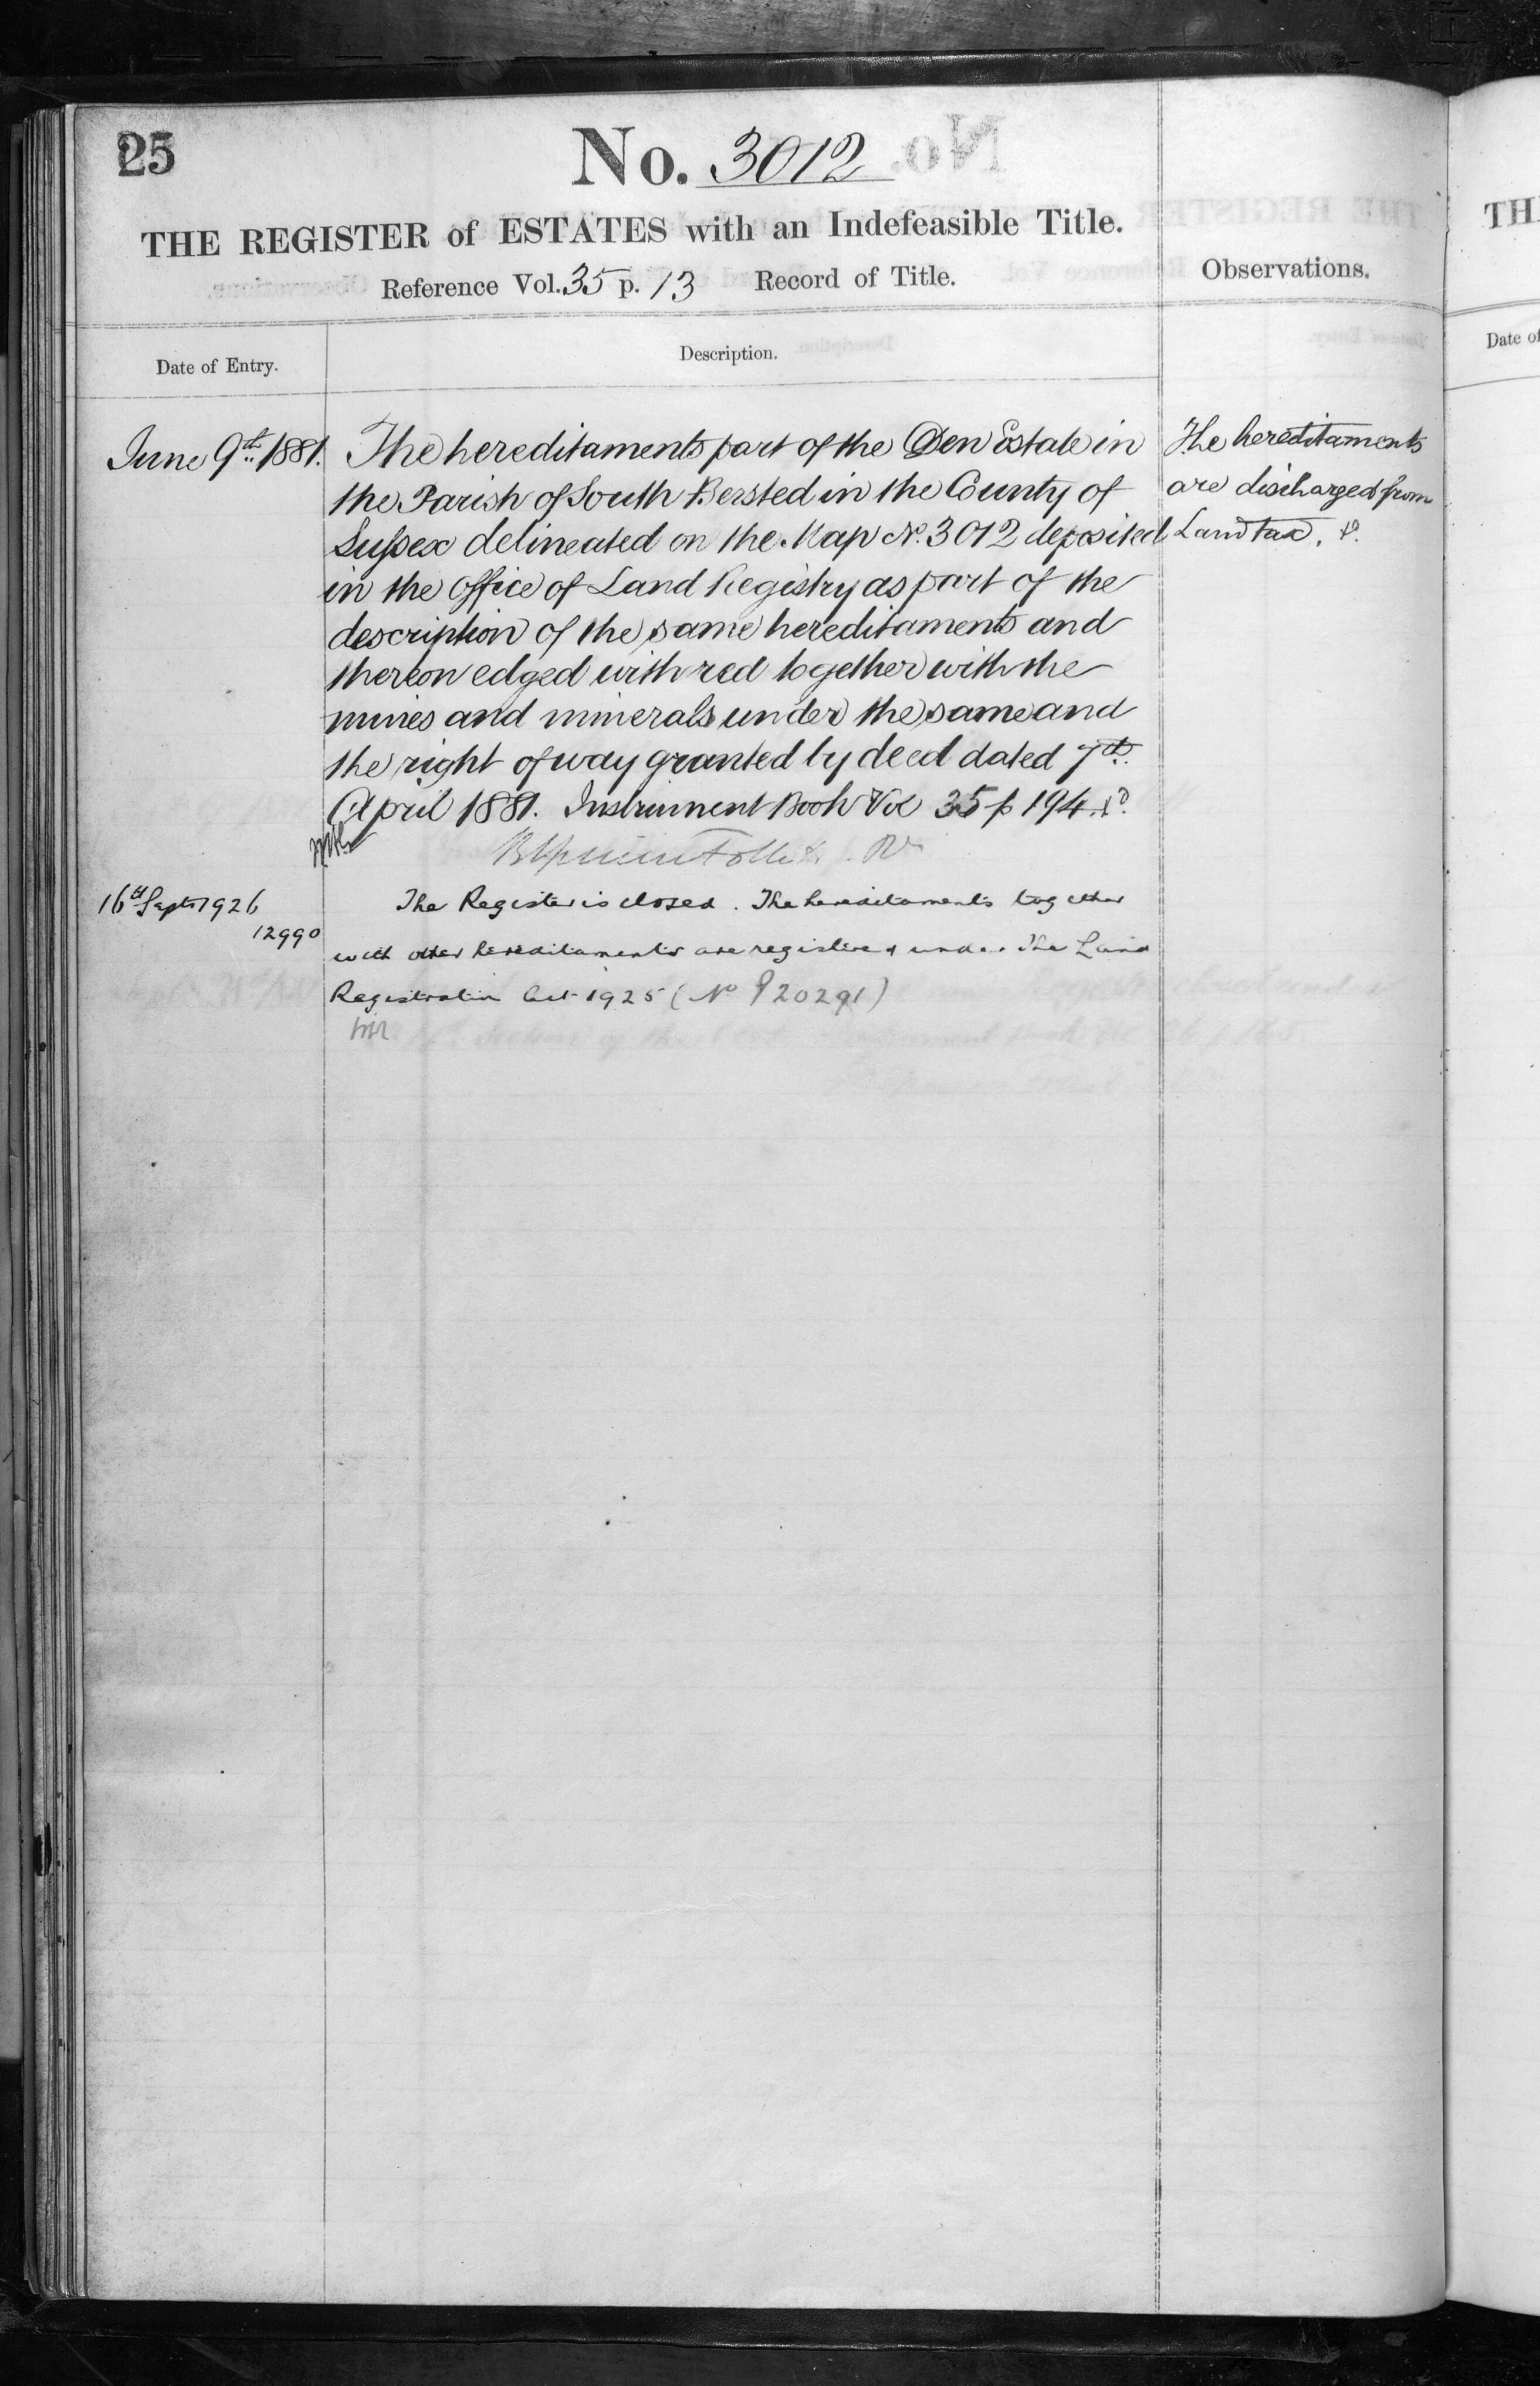 25
No. 3012
THE REGISTER of ESTATES with an Indefeasible Title.
Reference Vol. 35 p. 13 Record of Title.
Observations.
Date of Entry.
Description.
June 9th 1881.
The hereditaments part of the Den Estate in
the Parish of South Bersted in the County of
Sussex delineated on the Map No. 3012 deposited
in the Office of Land Registry as part of the
description of the same hereditaments and
thereon edged with red together with the
mines and minerals under the same and
the right of way granted by deed dated 7th
April 1881. Instrument Book Vol 35 p 194.
The hereditaments
are discharged from
Land tax.
16th Sept 1926
12990
The Register is closed. The hereditaments together
with other hereditaments are registered under the Land
Registration Act 1925 (No P20291)
TH
Date of